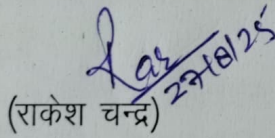 27/8/25
(राकेश चन्द्र)